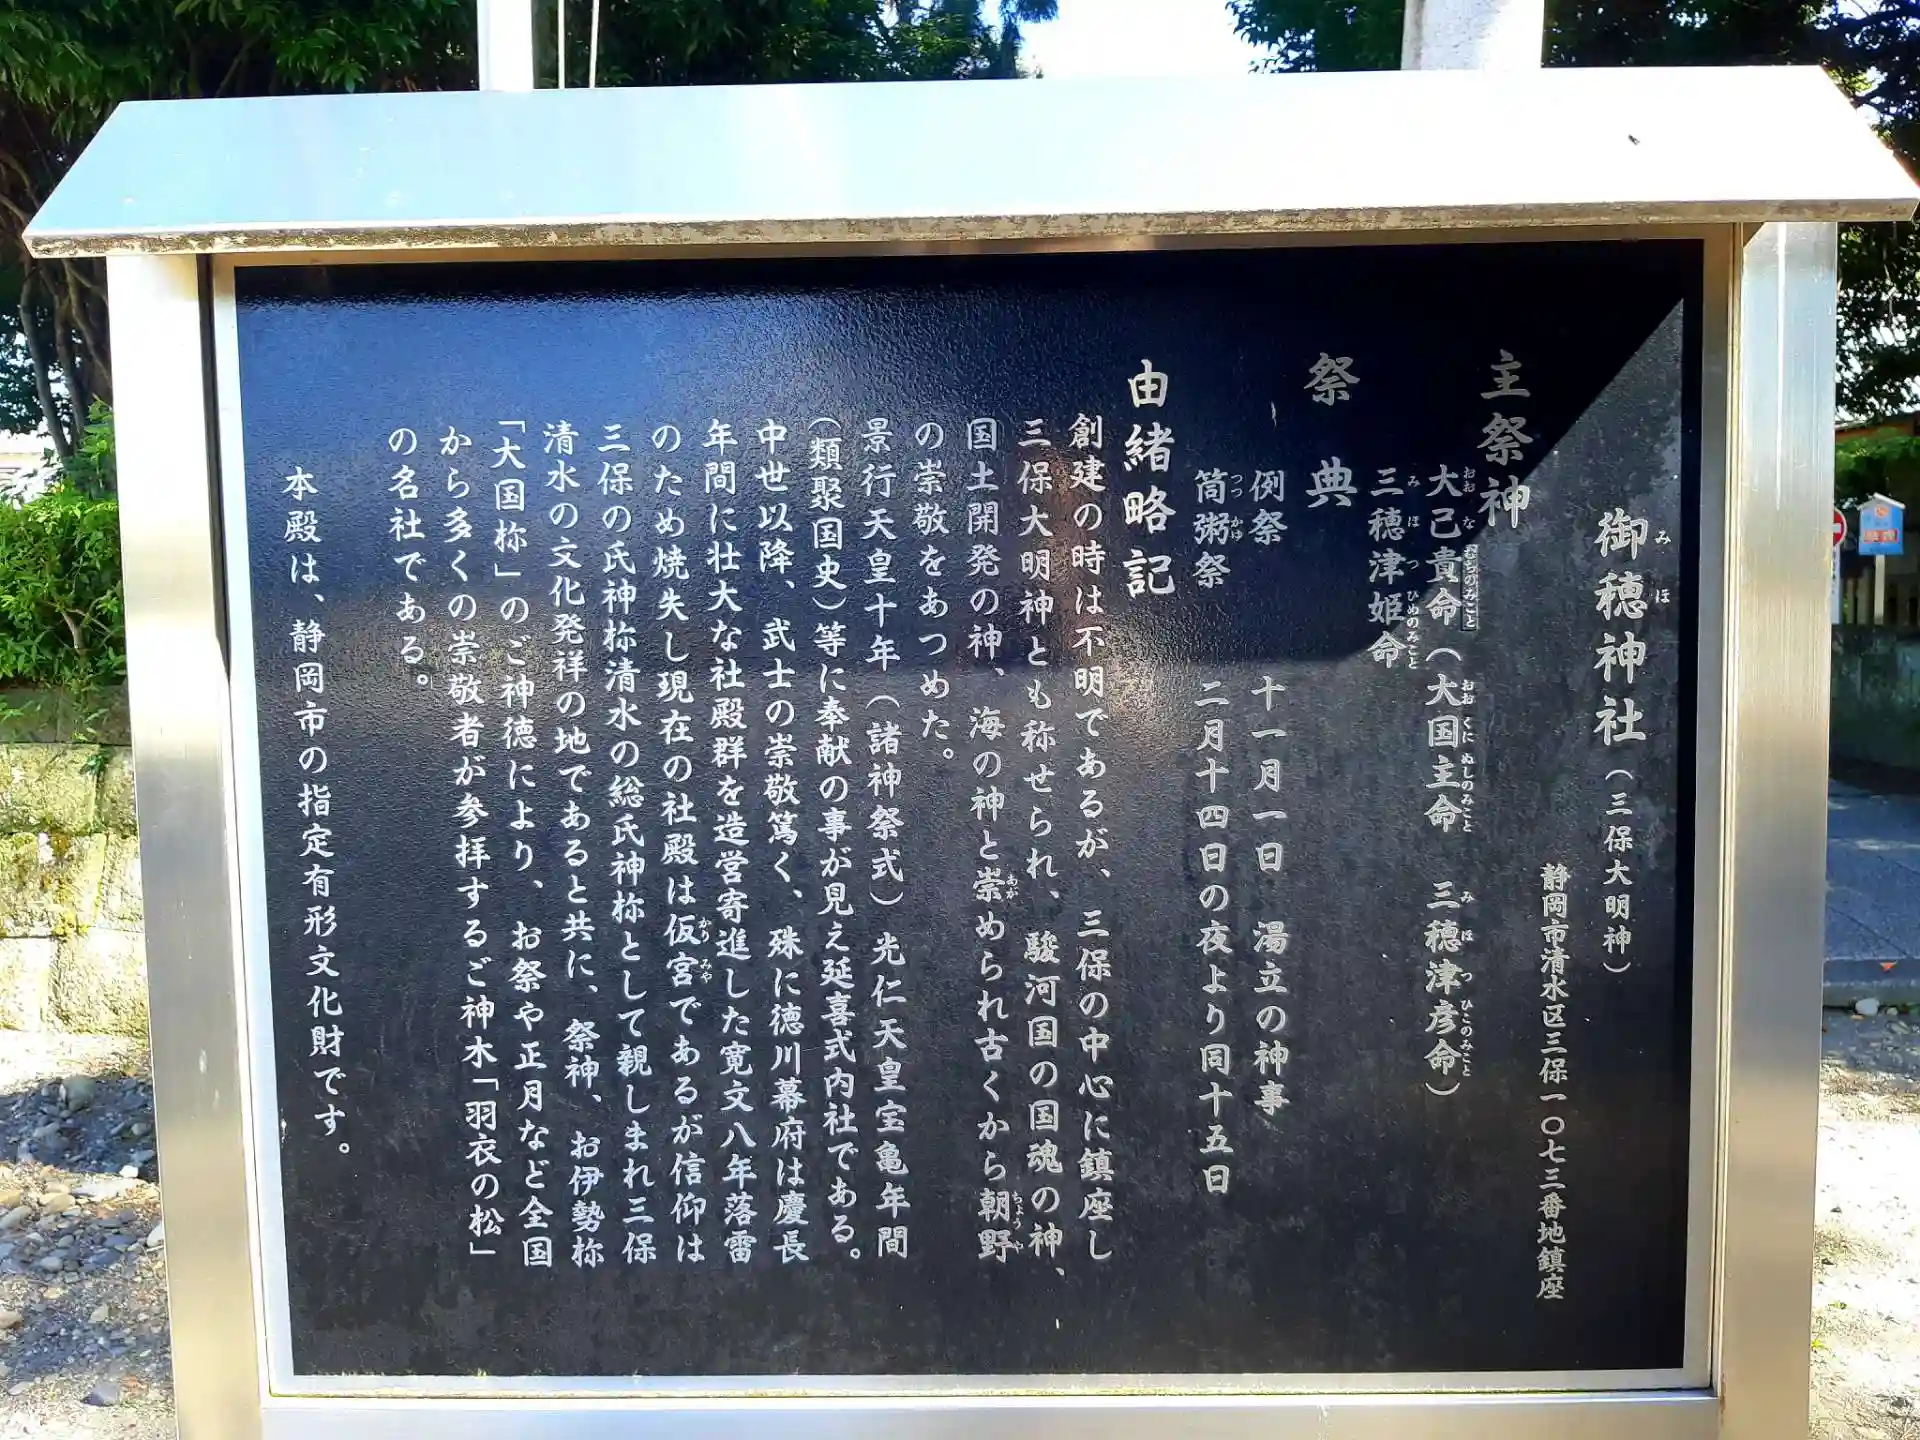 御穂神社（三保大明神）
静岡市清水区三保一〇七三番地鎮座
主祭神
大己貴命（大国主命　三穂津彦命）
三穂津姫命
祭典
例祭　十一月一日　湯立の神事
筒粥祭　二月十四日の夜より同十五日
由緒略記
創建の時は不明であるが、三保の中心に鎮座し
三保大明神とも称せられ、駿河国の国魂の神、
国土開発の神、海の神と崇められ古くから朝野
の崇敬をあつめた。
景行天皇十年（諸神祭式）光仁天皇宝亀年間
（類聚国史）等に奉献の事が見え延喜式内社である。
中世以降、武士の崇敬篤く、殊に徳川幕府は慶長
年間に壮大な社殿群を造営寄進した寛文八年落雷
のため焼失し現在の社殿は仮宮であるが信仰は
三保の氏神祢清水の総氏神祢として親しまれ三保
清水の文化発祥の地であると共に、祭神、お伊勢祢
「大国祢」のご神徳により、お祭や正月など全国
から多くの崇敬者が参拝するご神木「羽衣の松」
の名社である。
本殿は、静岡市の指定有形文化財です。